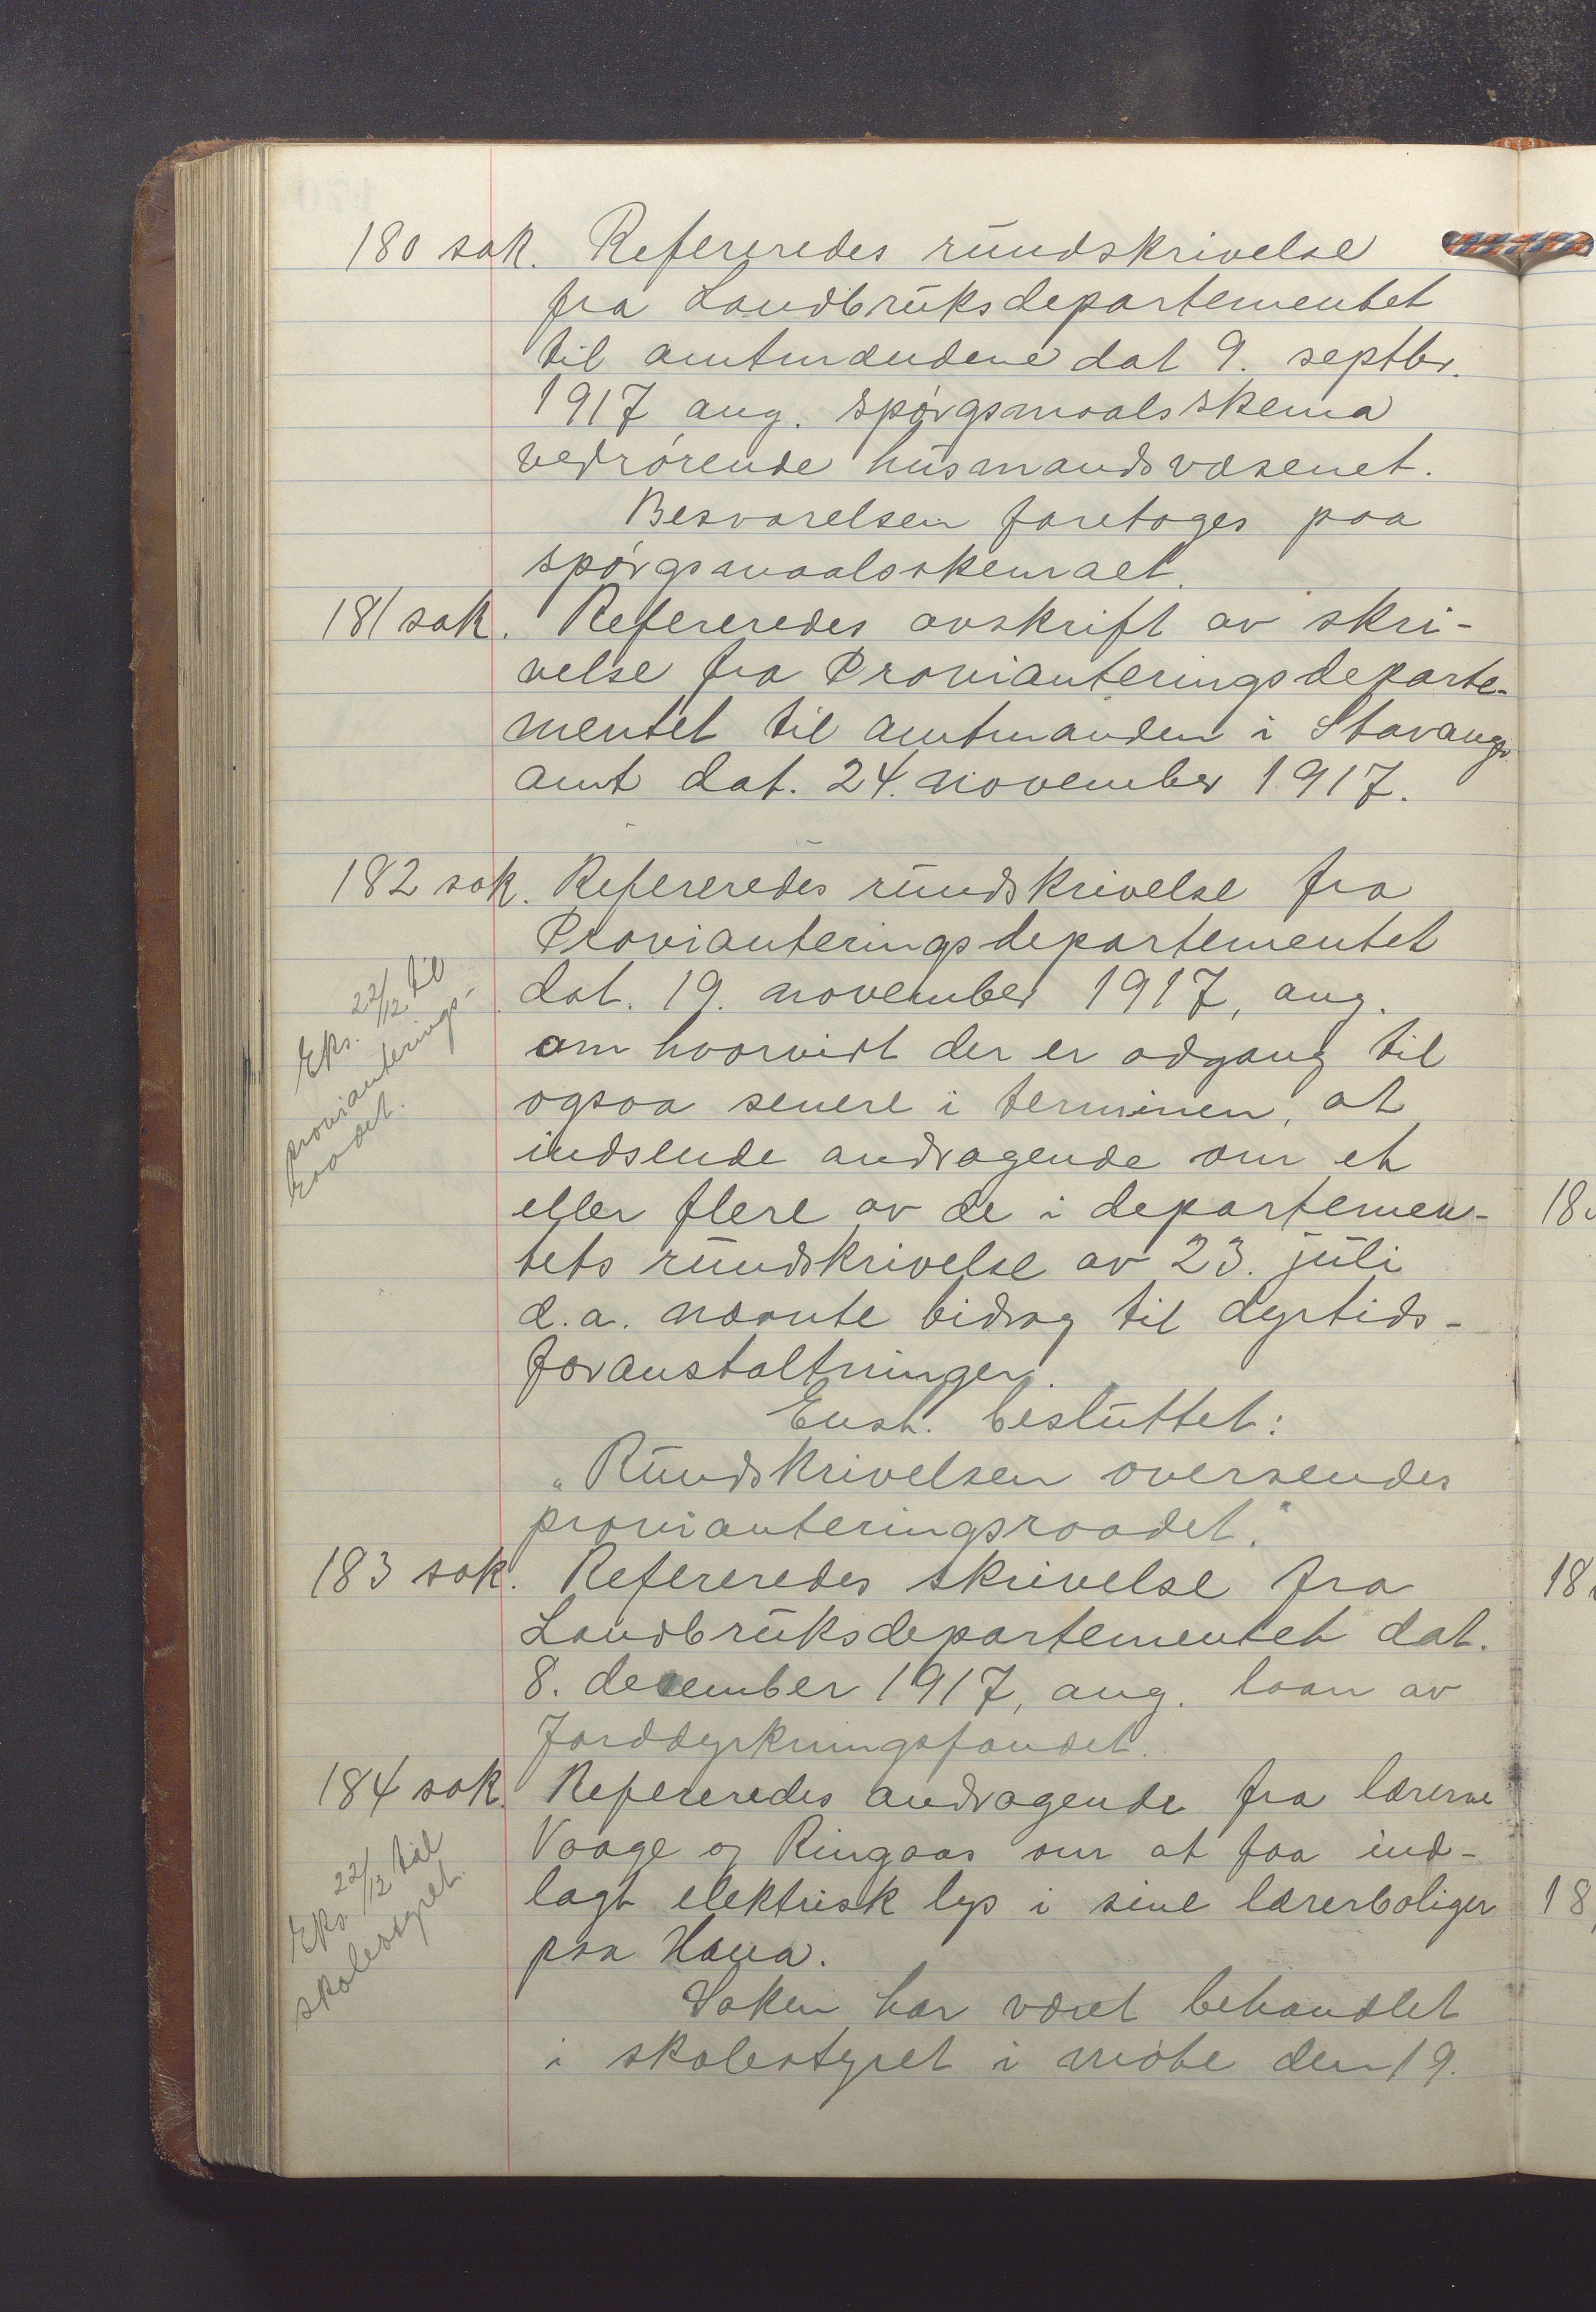 180 sak. Refereredes rundskrivelse
fra Landbruksdepartementet
til amtmændene dat 9. septbr.
1917 ang. spørgsmaalsskema
vedrørende husmandsvæsenet.
Besvarelsen foretoges paa
spørgsmaalsskemaet.
181 sak. Refereredes avskrift av skri-
velse fra Provianteringsdeparte-
mentet til amtmanden i Stavanger
amt dat. 24. november 1917.
182 sak. Refereredes rundskrivelse fra
Provianteringsdepartementet
dat. 19. november 1917, ang.
om hvorvidt der er adgang til
ogsaa senere i terminen, at
indsende andragende om et
eller flere av de i departemen-
tets rundskrivelse av 23. juli
d.a. nævnte bidrag til dyrtids-
foranstaltninger.
Enst. besluttet:
"Rundskrivelsen oversendes
provianteringsraadet."
Eks. 22/12 til
provianterings-
raadet.
183 sak. Refereredes skrivelse fra
Landbruksdepartementet dat.
8. december 1917, ang. laan av
Jorddyrkningsfondet.
184 sak. Refereredes andragende fra lærerne
Vaage og Ringaas om at faa ind-
lagt elektrisk lys i sine lærerboliger
paa Hana.
Saken har været behandlet
i skolestyret i møte den 19.
Eks. 22/12 til
skolestyret.
18
18
18